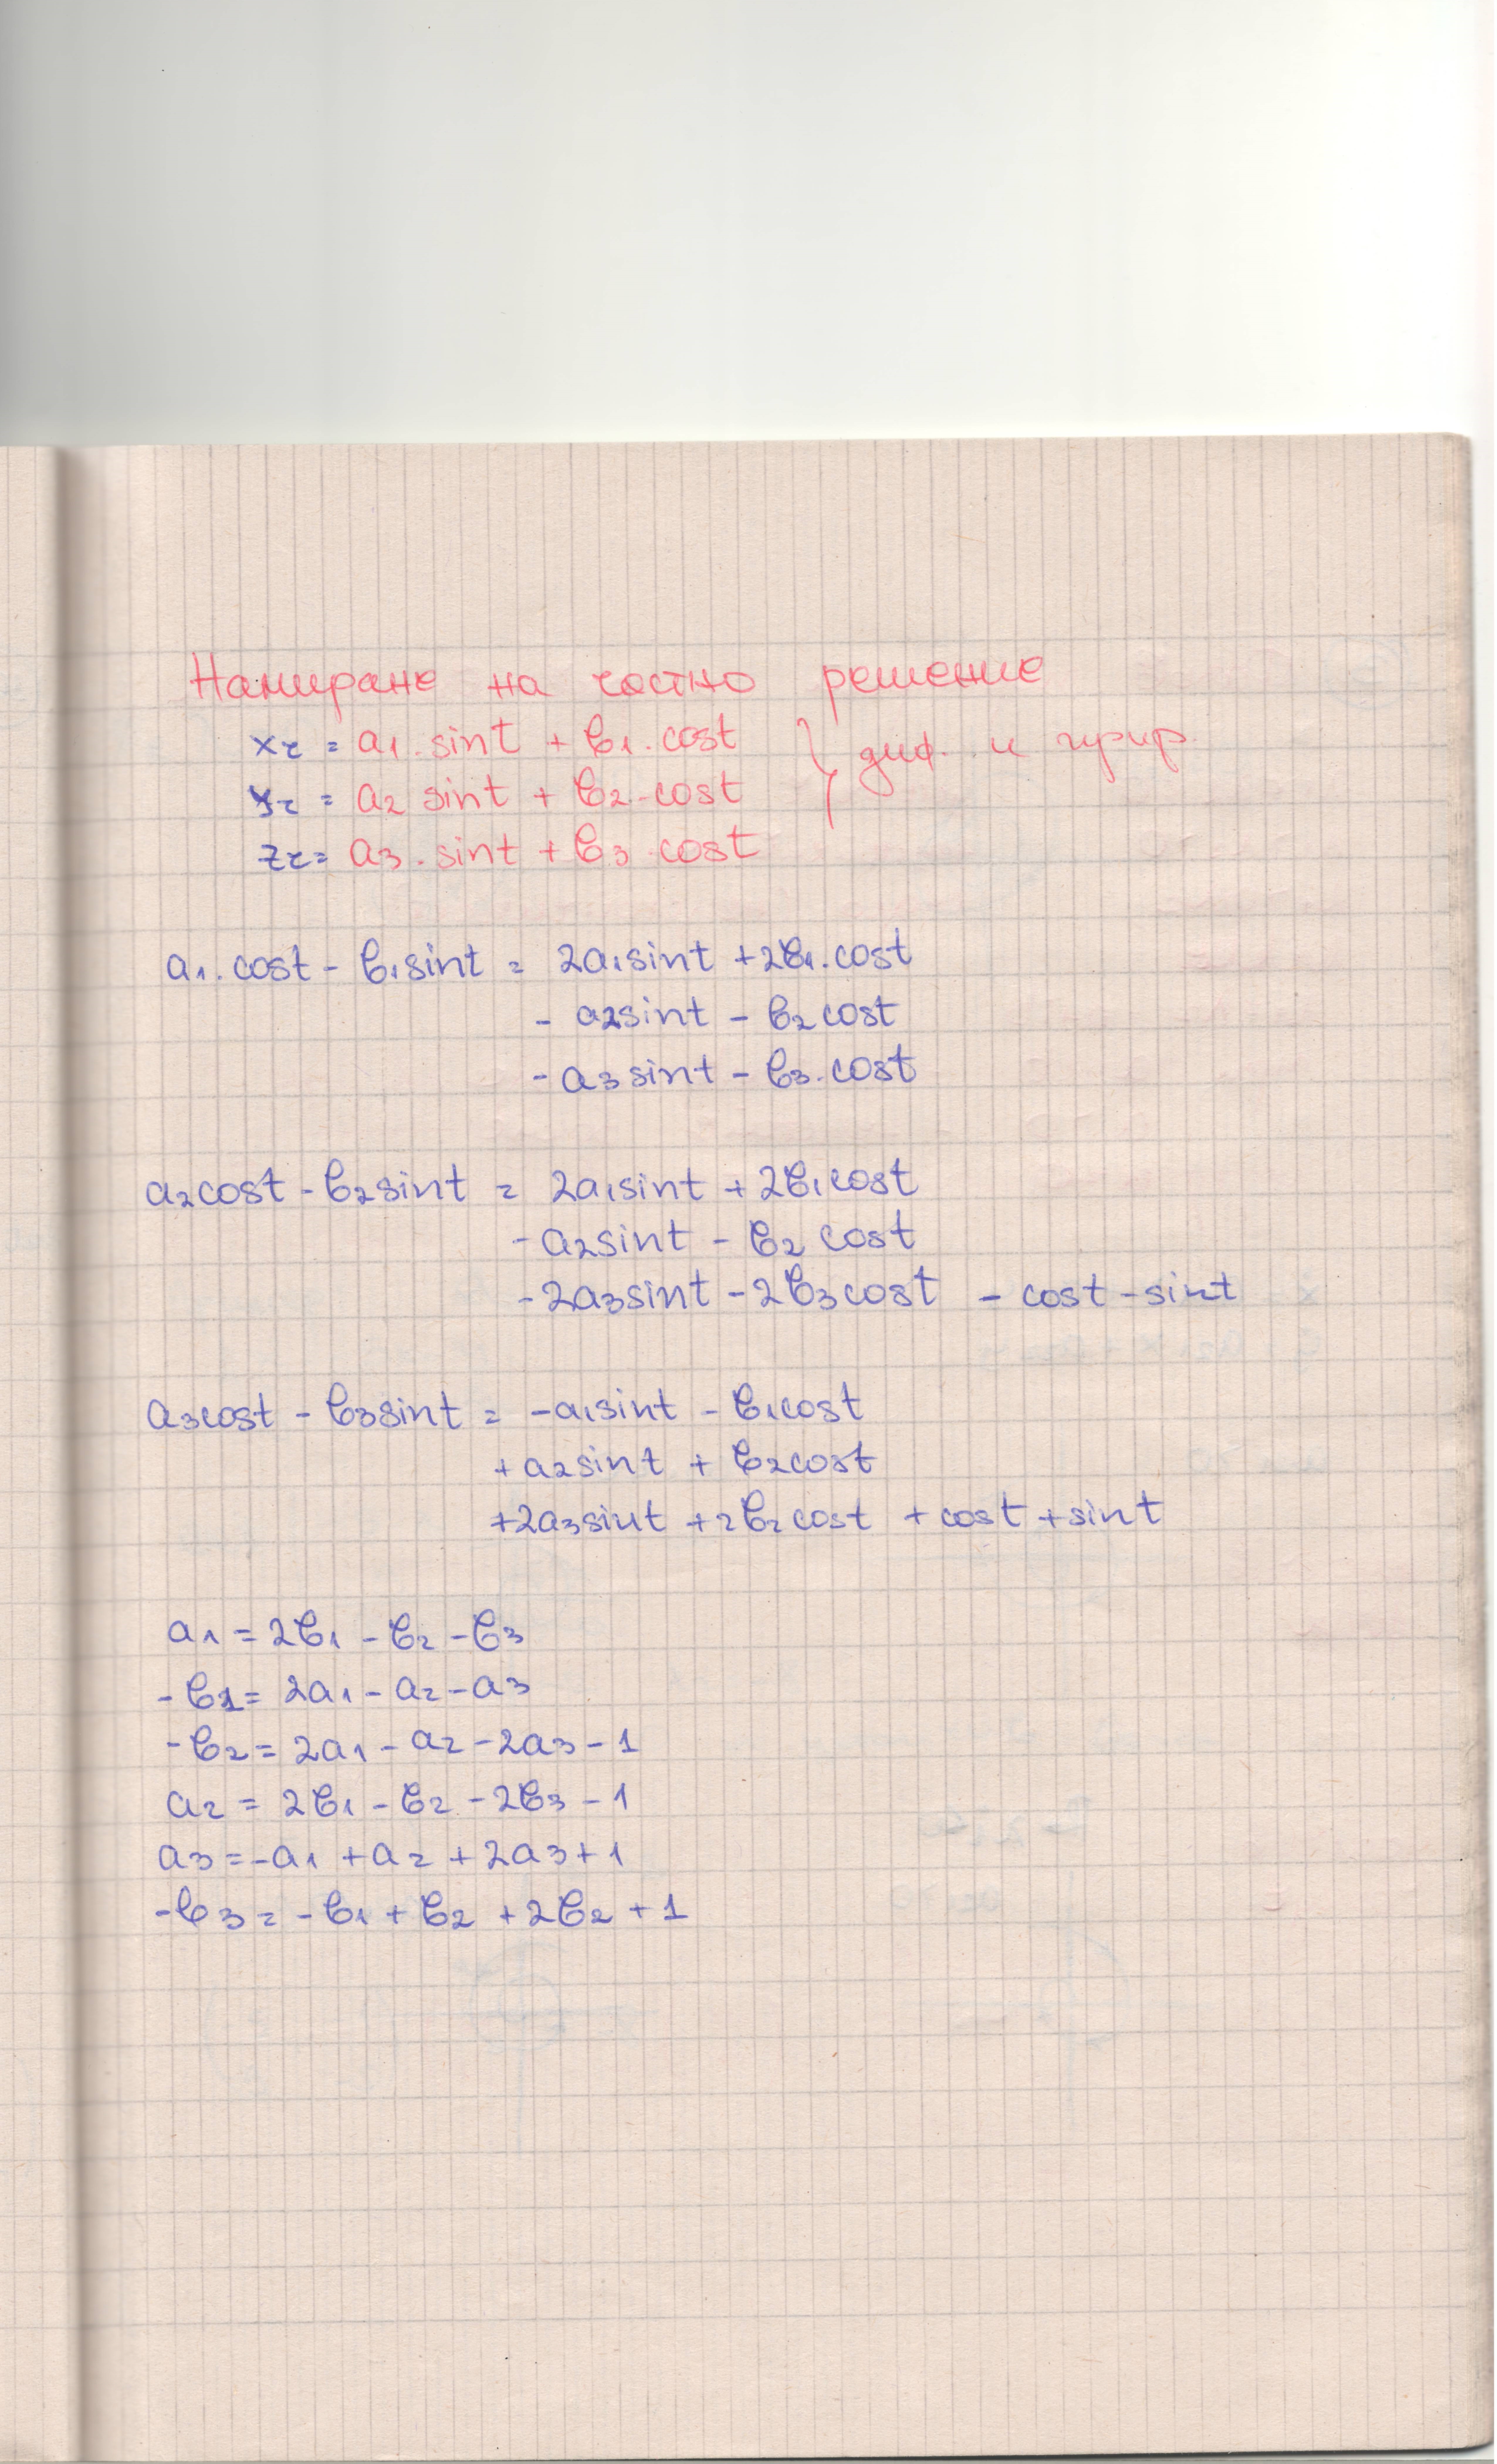 Намиране на частно решение
xr = a1. sint + b1. cost } диф. и прир.
yr = a2 sint + b2. cost
zr = a3. sint + b3. cost
a1. cost - b1sint = 2a1sint + 2b1. cost
- a2sint - b2cost
- a3sint - b3. cost
a2cost - b2sint = 2a1sint + 2b1cost
- a2sint - b2 cost
- 2a3sint - 2b3cost - cost - sint
a3cost - b3sint = -a1sint - b1cost
+ a2sint + b2cost
+2a3sint + 2b2cost + cost + sint
a1 = 2b1 - b2 - b3
- b1 = 2a1 - a2 - a3
- b2 = 2a1 - a2 - 2a3 - 1
a2 = 2b1 - b2 - 2b3 - 1
a3 = -a1 + a2 + 2a3 + 1
-b3 = -b1 + b2 + 2b2 + 1